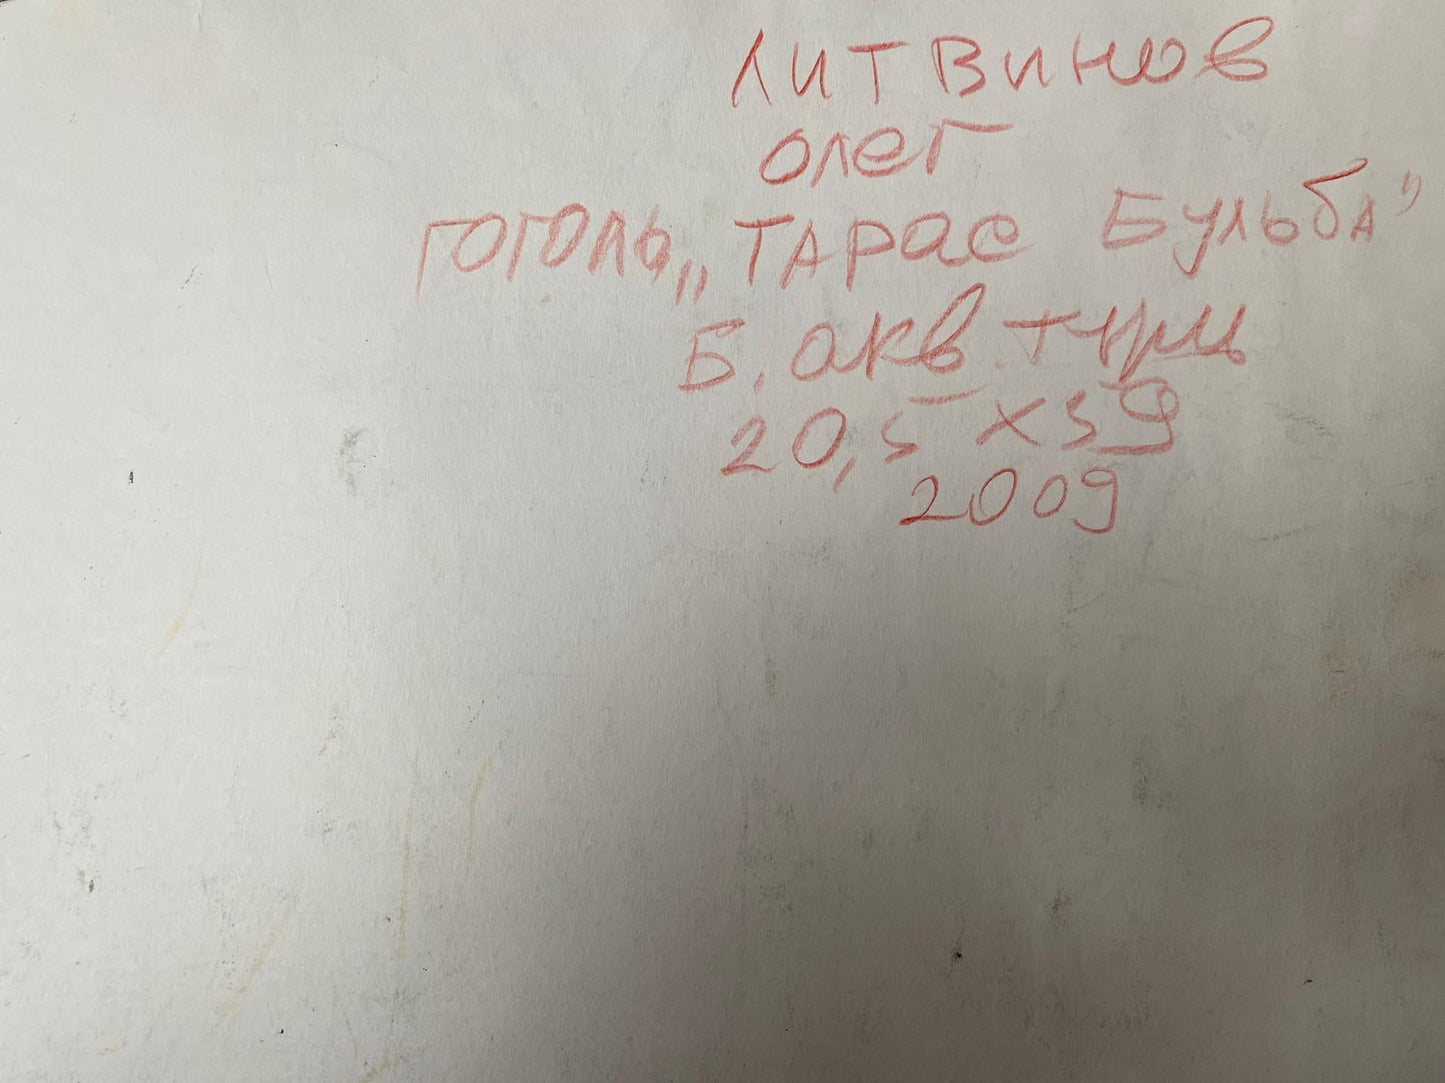 ЛИТВИНОВ
ОЛЕГ
ГОГОЛЬ „ТАРАС БУЛЬБА"
Б. акв. туш
20,5 x 59
2009